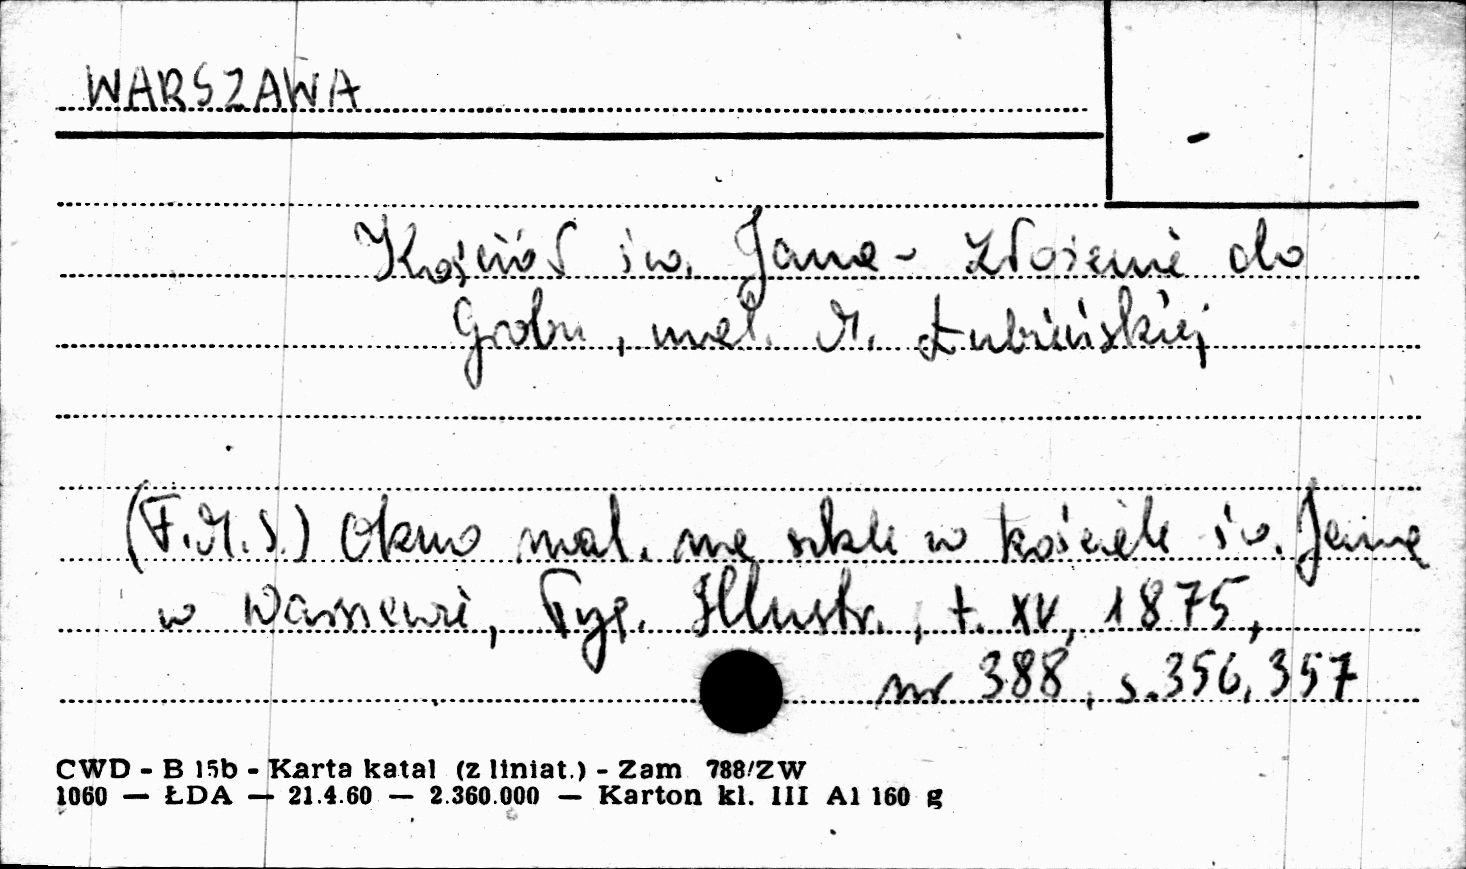 WARSZAWA
Kościół św. Jana - Złożenie do
Grobu, mal. M. Łubieńskiej
(F.M.S.) Okno mal. na szkle w kościele św. Jana
w Warszawie, Tyg. Illustr., t. XV, 1875,
nr 388, s. 356, 357
CWD - B 15b - Karta katal (z liniat.) - Zam 788/ZW
1060 — ŁDA — 21.4.60 — 2.360.000 — Karton kl. III A1 160 g